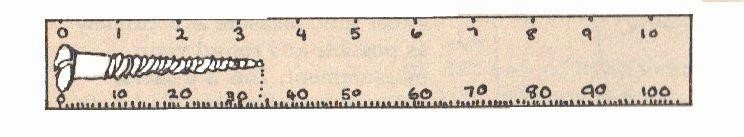 0 1 2 3 4 5 6 7 8 9 10
0 10 20 30 40 50 60 70 80 90 100